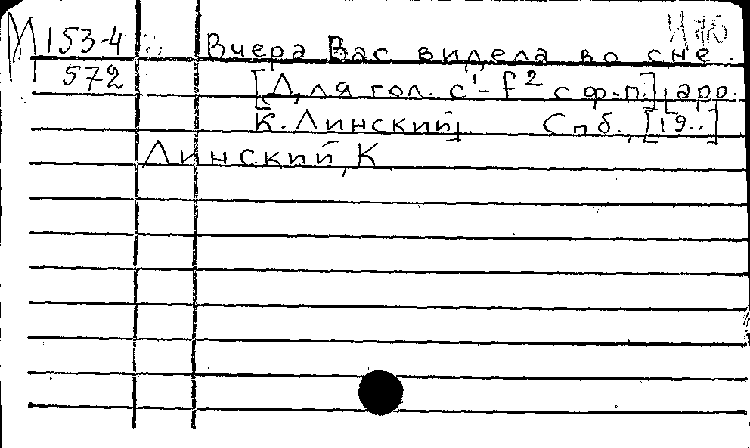 М 153-4
572
Вчера Вас видела во сне.
[Для гол. c¹-f² с ф.-п.], арр.
К. Линский. Спб., [19..]
Линский, К